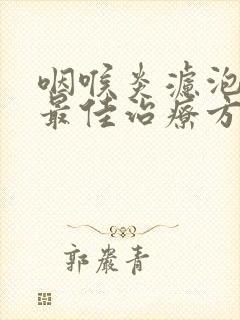 咽喉炎濾泡
最佳治療方
郭嚴青